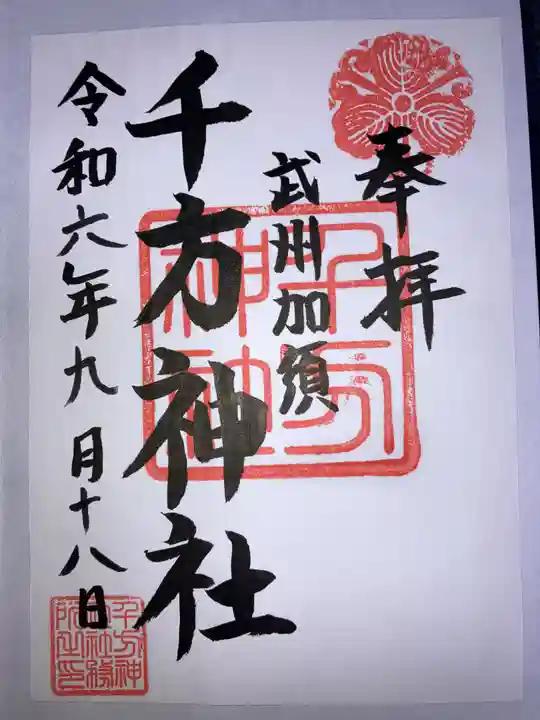 奉拝
武州加須
千方神社
令和六年九月十八日
千方
神社